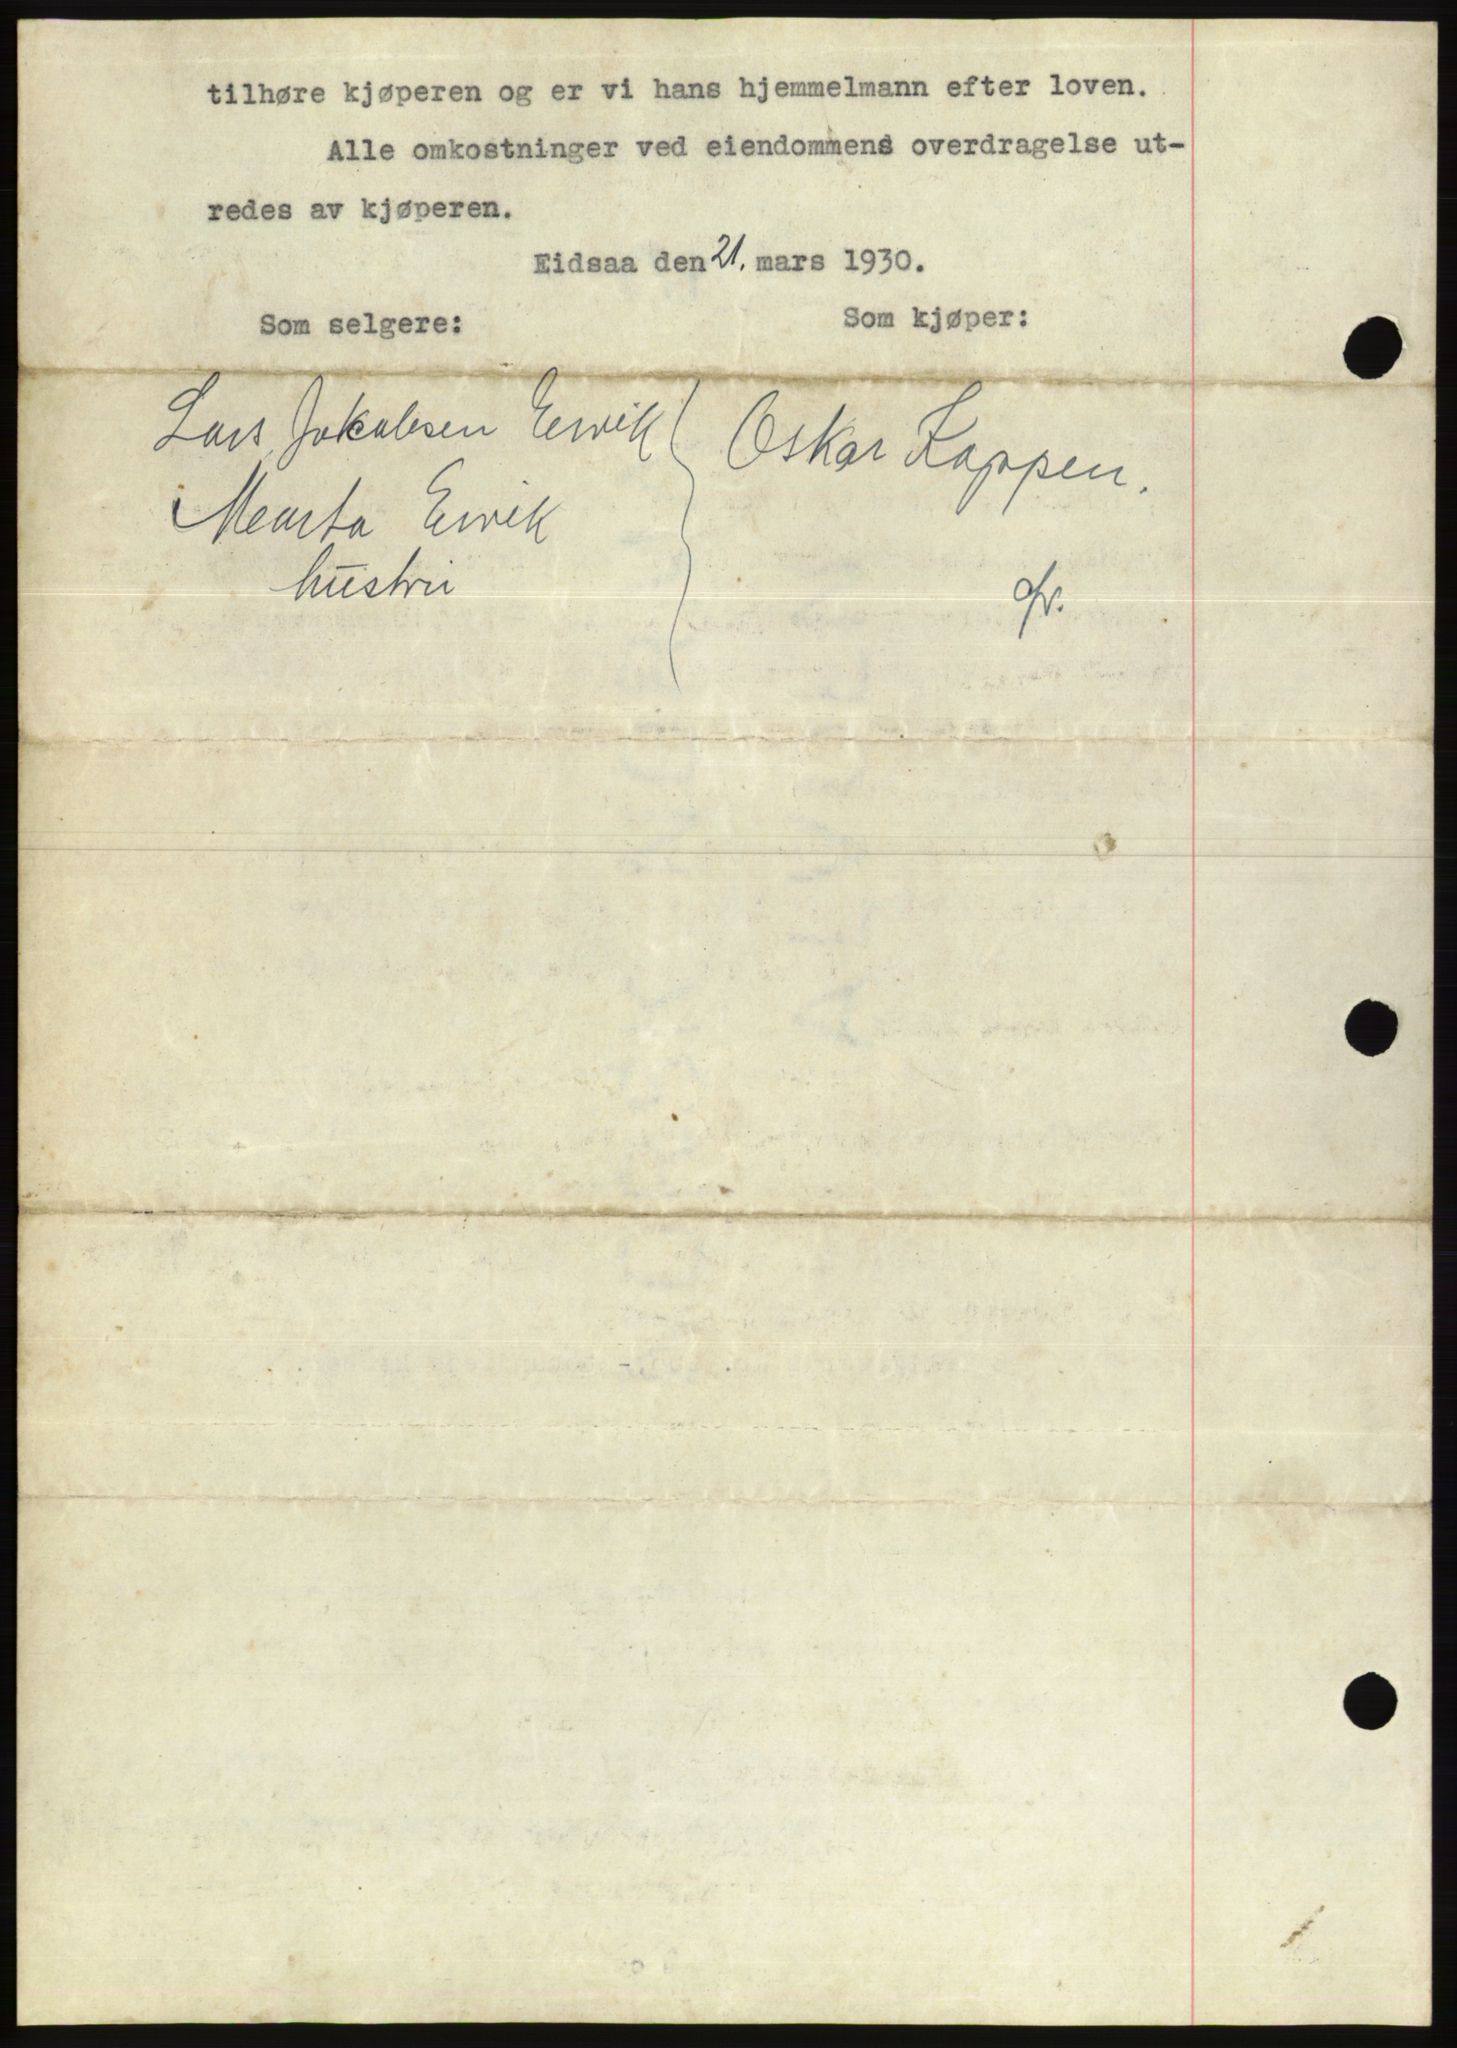 tilhøre kjøperen og er vi hans hjemmelmann efter loven.
Alle omkostninger ved eiendommens overdragelse ut-
redes av kjøperen.
Eidsaa den 21. mars 1930.
Som selgere: Som kjøper:
Lars Jakobsen Ervik Oskar Koppen.
Marta Ervik
hustru